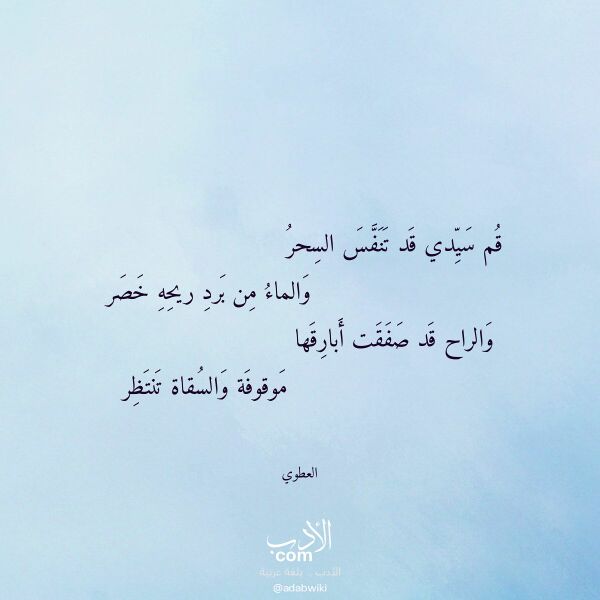 قُم سَيِّدي قَد تَنَفَّسَ السِحرُ
وَالماءُ مِن بَردِ ريحِهِ خَصَر
وَالراح قَد صَفَقَت أَبارِقَها
مَوقوفَة وَالسُقاة تَنتَظِر
العطوي
الأدب
com
الأدب .. بلغة عربية
@adabwiki